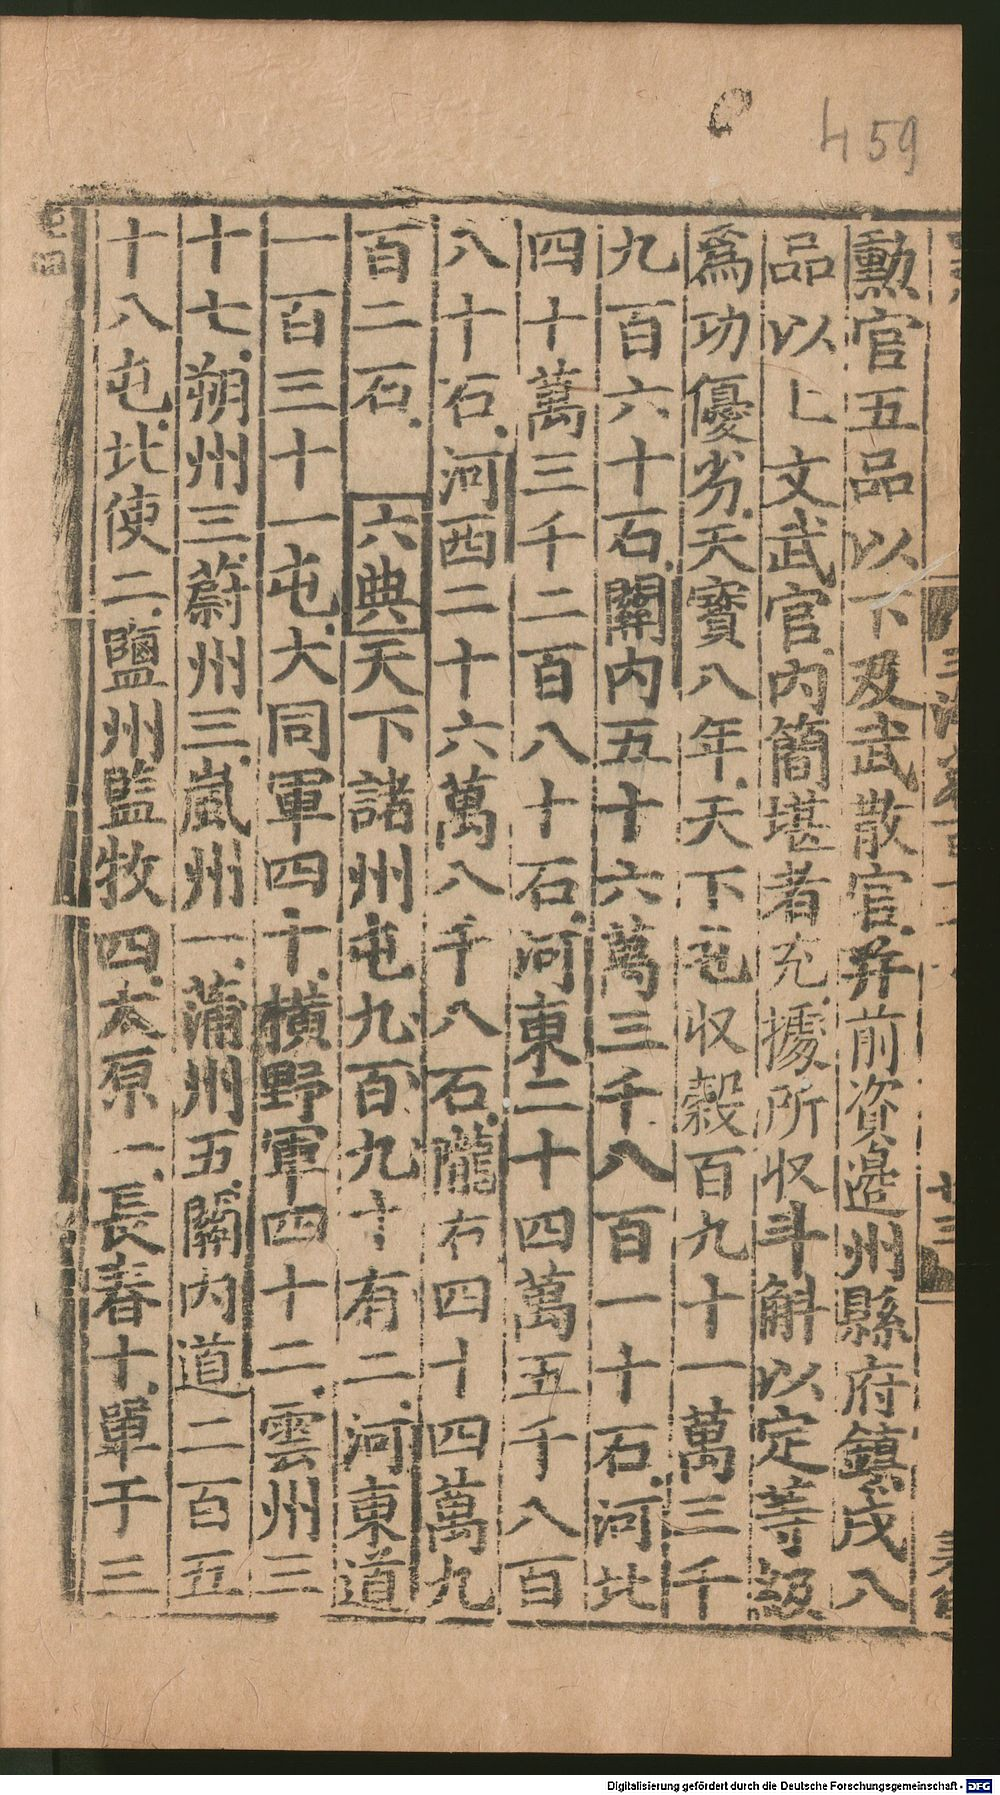 459
勲官五品以下及武散官并前資邉州縣府鎮戍八
品以上文武官内簡堪者充據所収斗斛以定等級
爲功優劣天寳八年天下屯収穀百九十一萬三千
九百六十石關内五十六萬三千八百一十石河北
四十萬三千二百八十石河東二十四萬五千八百
八十石河西二十六萬八千八石隴右四十四萬九
百二石 六典天下諸州屯九百九十有二河東道
一百三十一屯大同軍四十横野軍四十二雲州三
十七朔州三蔚州三嵐州一蒲州五關内道二百五
十八屯北使二鹽州監牧四太原一長春十單于三
Digitalisierung gefördert durch die Deutsche Forschungsgemeinschaft - DFG